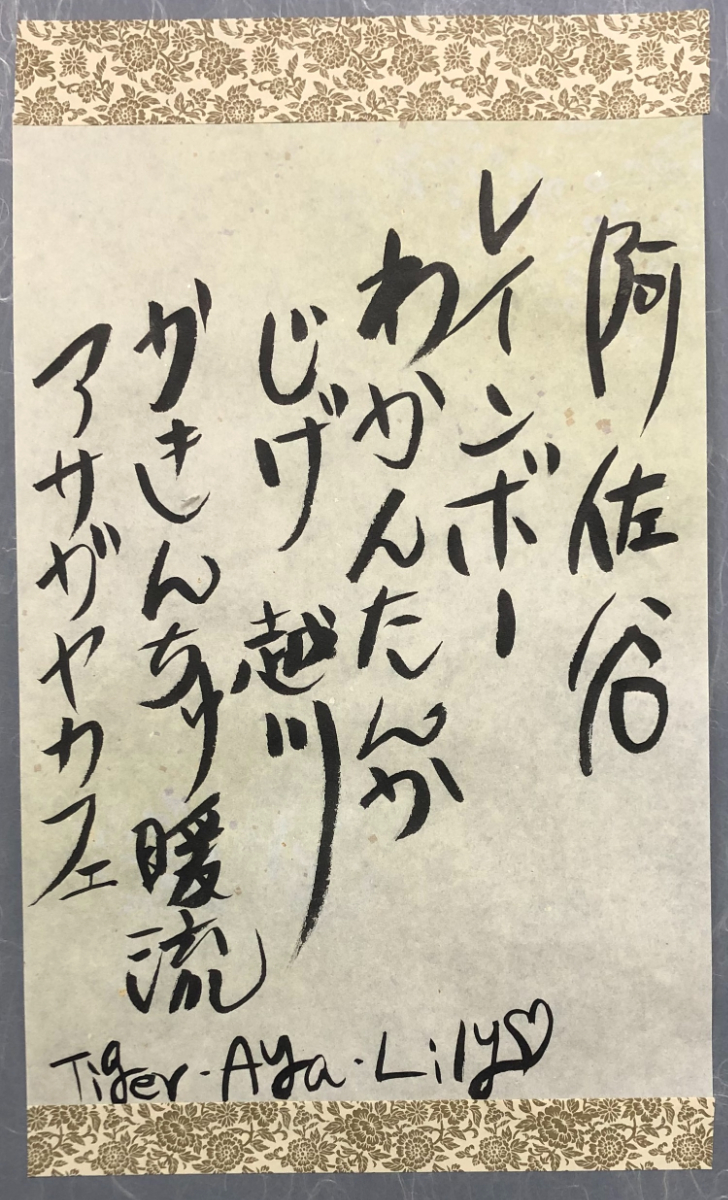 阿佐谷
レインボー
わかんたんか
じげ 越川
かきんちり 暖流
アサガヤカフェ
Tiger・Aya・Lily♡